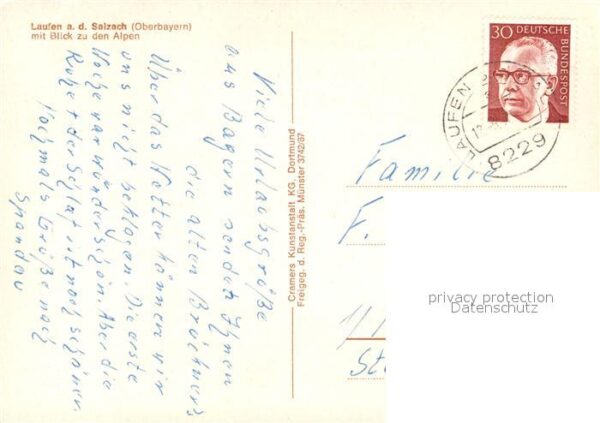 Laufen a. d. Salzach (Oberbayern)
mit Blick zu den Alpen
Viele Urlaubsgrüße
aus Bayern senden Ihnen
die alten
Über das Wetter können wir
uns nicht beklagen. Die erste
Woche war wunderschön. Aber die
Ruhe der Schlaf ist noch schöner.
Nochmals Grüße nach
Spandau
Cramers Kunstanstalt KG, Dortmund
Freigeg. d. Reg.-Präs. Münster 3742/67
30 DEUTSCHE
BUNDESPOST
LAUFEN
8229
Familie
F.
privacy protection
Datenschutz